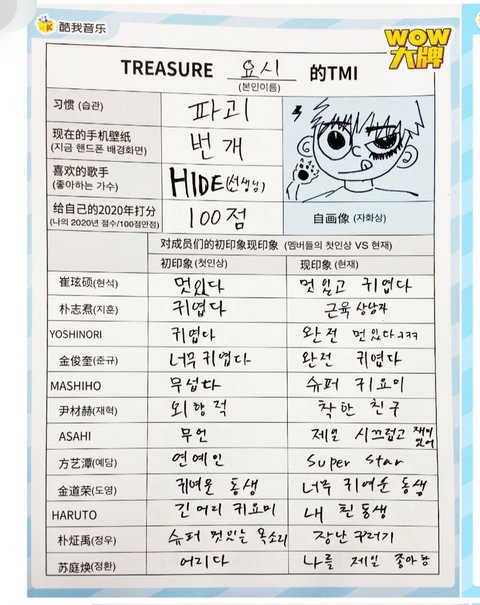 酷我音乐
WOW
大牌
TREASURE 요시 的TMI
(본인이름)
习惯 (습관) 파괴
现在的手机壁纸
(지금 핸드폰 배경화면) 번개
喜欢的歌手
(좋아하는 가수) HIDE(선생님)
给自己的2020年打分
(나의 2020년 점수/100점만점) 100점
自画像 (자화상)
对成员们的初印象现印象 (멤버들의 첫인상 VS 현재)
初印象(첫인상) 现印象 (현재)
崔玹硕(현석) 멋있다 멋있고 귀엽다
朴志焄(지훈) 귀엽다 근육 상남자
YOSHINORI 귀엽다 완전 멋있다ㅋㅋㅋ
金俊奎(준규) 너무 귀엽다 완전 귀엽다
MASHIHO 무섭다 슈퍼 귀요미
尹材赫(재혁) 외향적 착한 친구
ASAHI 무언 제일 시끄럽고 재미있어
方艺潭(예담) 연예인 Super Star
金道荣(도영) 귀여운 동생 너무 귀여운 동생
HARUTO 긴 머리 귀요미 내 친동생
朴炡禹(정우) 슈퍼 멋있는 목소리 장난꾸러기
苏庭焕(정환) 어리다 나를 제일 좋아함